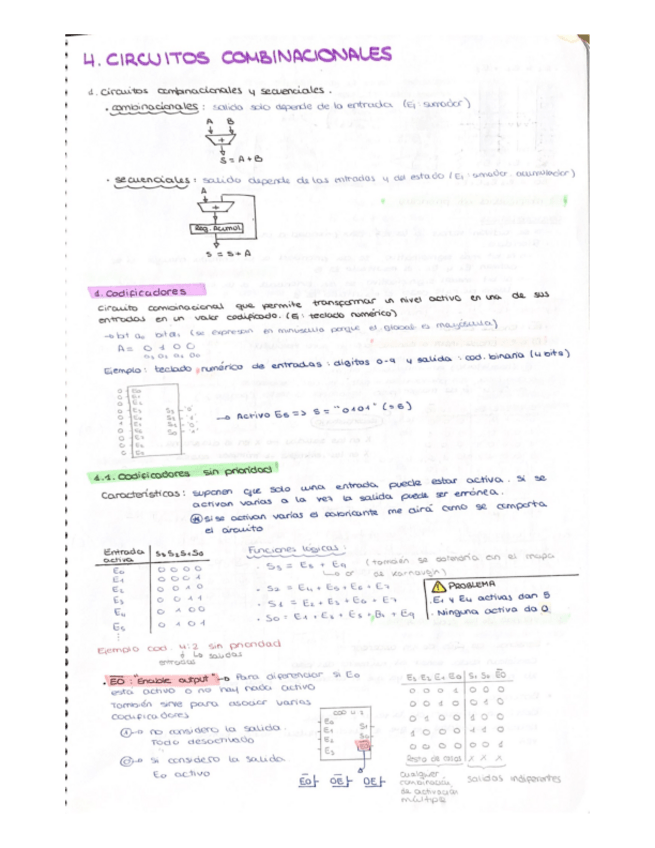 4. CIRCUITOS COMBINACIONALES
1. Circuitos combinacionales y secuenciales.
· combinacionales: salida solo depende de la entrada (Ej: sumador)
A B
+
S = A + B
· secuenciales: salida depende de las entradas y del estado (Ej: sumador acumulador)
A
+
Reg. Acumul.
S = S + A
1. Codificadores
Circuito combinacional que permite transformar un nivel activo en una de sus
entradas en un valor codificado. (Ej: teclado numérico)
→ bit a0 bit a1 (se expresan en minúscula porque el global es mayúscula)
A = 0 1 0 0
a3 a2 a1 a0
Ejemplo: teclado numérico de entradas: dígitos 0-9 y salida: cod. binaria (4 bits)
→ Activo E5 => S = "0101" (=5)
1.1. Codificadores sin prioridad
Características: suponen que solo una entrada puede estar activa. Si se
activan varias a la vez la salida puede ser errónea.
si se activan varias el fabricante me dirá como se comporta
el circuito
Entrada activa S3 S2 S1 S0
E0 0 0 0 0
E1 0 0 0 1
E2 0 0 1 0
E3 0 0 1 1
E4 0 1 0 0
E5 0 1 0 1
Funciones lógicas:
· S3 = E8 + E9 (también se obtendría con el mapa
or de Karnaugh)
· S2 = E4 + E5 + E6 + E7
· S1 = E2 + E3 + E6 + E7
· S0 = E1 + E3 + E5 + E7 + E9
⚠ PROBLEMA
· E1 y E4 activas dan 5
· Ninguna activa da 0
Ejemplo cod. 4:2 sin prioridad
entradas salidas
· EO: "Enable output" → Para diferenciar si E0
está activo o no hay nada activo
También sirve para asociar varios
codificadores
① → no considero la salida.
Todo desactivado
⓪ → si considero la salida.
E0 activo
COD 4:2
E0
E1 S1
E2 S0
E3
EO OE OE
E3 E2 E1 E0 S1 S0 EO
0 0 0 1 0 0 0
0 0 1 0 0 1 0
0 1 0 0 1 0 0
1 0 0 0 1 1 0
0 0 0 0 0 0 1
Resto de casos X X X
cualquier
combinación
de activación
múltiple
salidas indiferentes